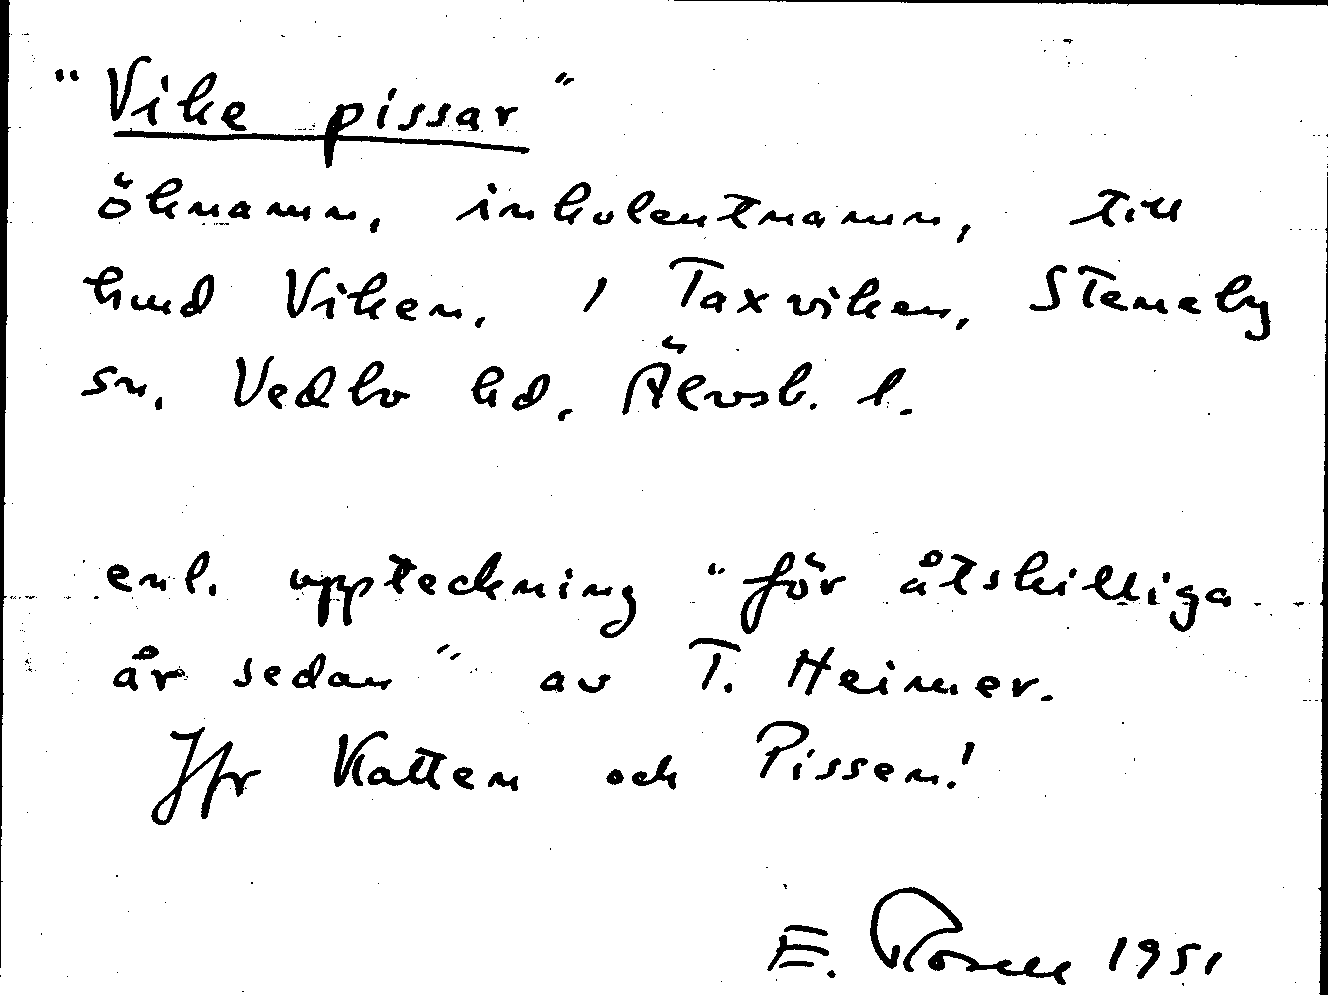 "Vike pissar"
öknamn, inkolentnamn, till
hmd Viken, 1 Taxviken, Steneby
sn, Vedbo hd, Älvsb. l.
enl. uppteckning "för åtskilliga
år sedan" av T. Heimer.
Jfr Katten och Pissen!
E. Rosell 1951